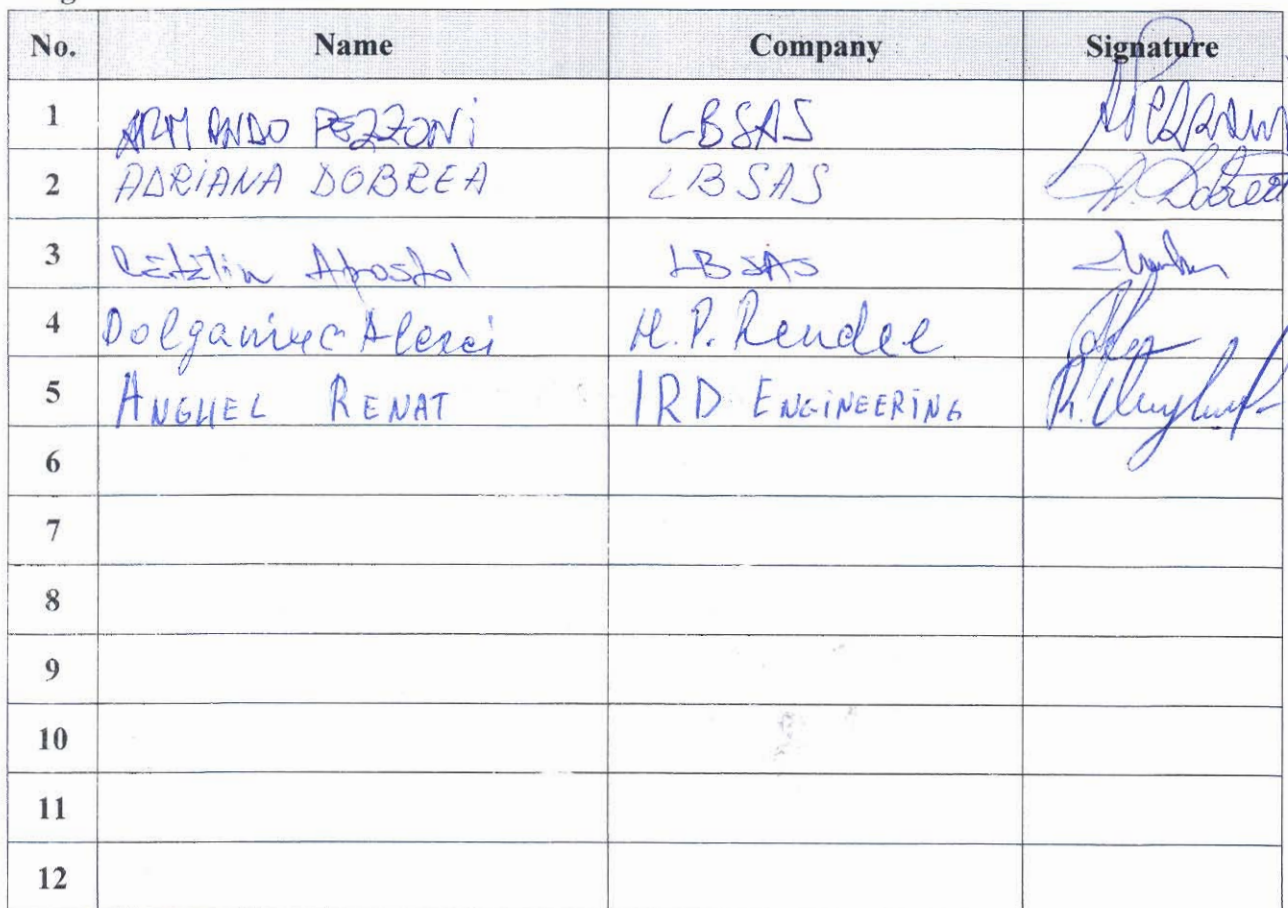 No. Name Company Signature
1 ARMANDO PEZZONi LBSAS
2 ADRiANA DOBREA LBSAS A. Dobrea
3 Apostol LBSAS
4 Dolganiuc Alexei H.P. Rendel
5 ANGHEL RENAT IRD ENGiNEERiNG
6
7
8
9
10
11
12